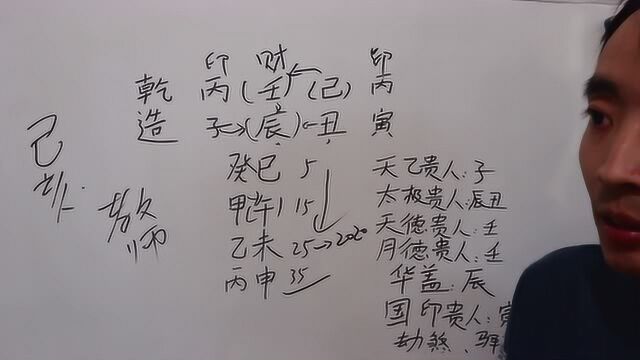 印 财 印
乾 丙 (壬) (己) 丙
造 子 (辰) 丑 寅
癸巳 5
甲午 15
乙未 25→2020
丙申 35
己
教师
天乙贵人:子
太极贵人:辰丑
天德贵人:壬
月德贵人:壬
华盖:辰
国印贵人:寅
劫煞,驿